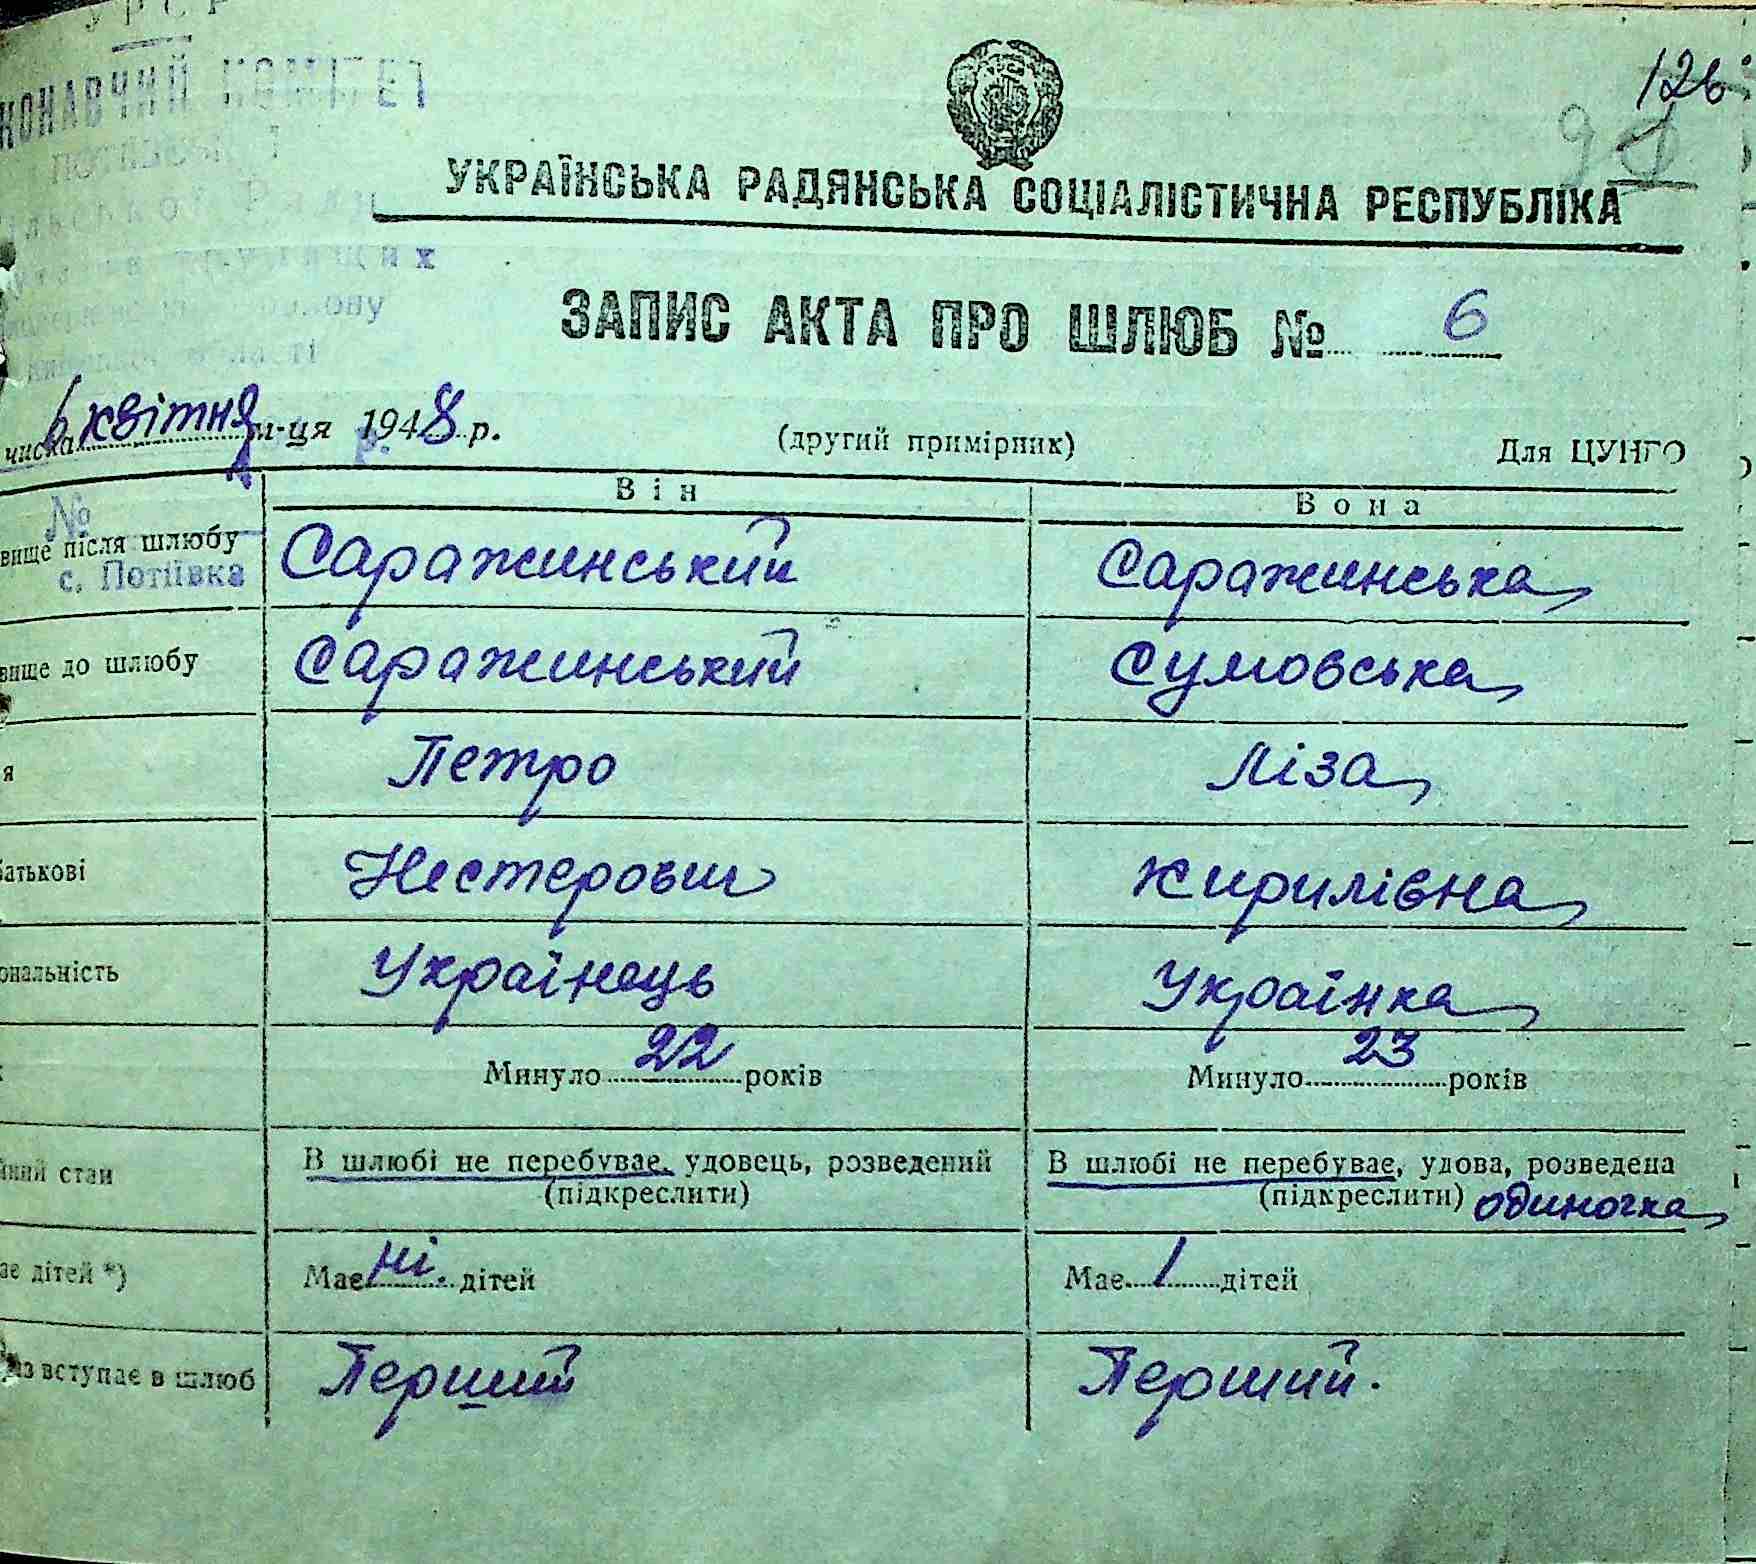 УРСР
КОНАВЧИЙ КОМІТЕТ
126
УКРАЇНСЬКА РАДЯНСЬКА СОЦІАЛІСТИЧНА РЕСПУБЛІКА
ЗАПИС АКТА ПРО ШЛЮБ № 6
числа 6 квітня м-ця 1948 р.
(другий примірник)
Для ЦУНГО
Він
Вона
№
вище після шлюбу Саражинський Саражинська
с. Потіївка
вище до шлюбу Саражинський Сумовська
я Петро Ліза
батькові Нестерович Кирилівна
ональність Українець Українка
Минуло 22 років Минуло 23 років
йний стан В шлюбі не перебуває, удовець, розведений В шлюбі не перебуває, удова, розведена
(підкреслити) (підкреслити) одиночка
ає дітей *) Має ні. дітей Має 1 дітей
аз вступає в шлюб Перший Перший.